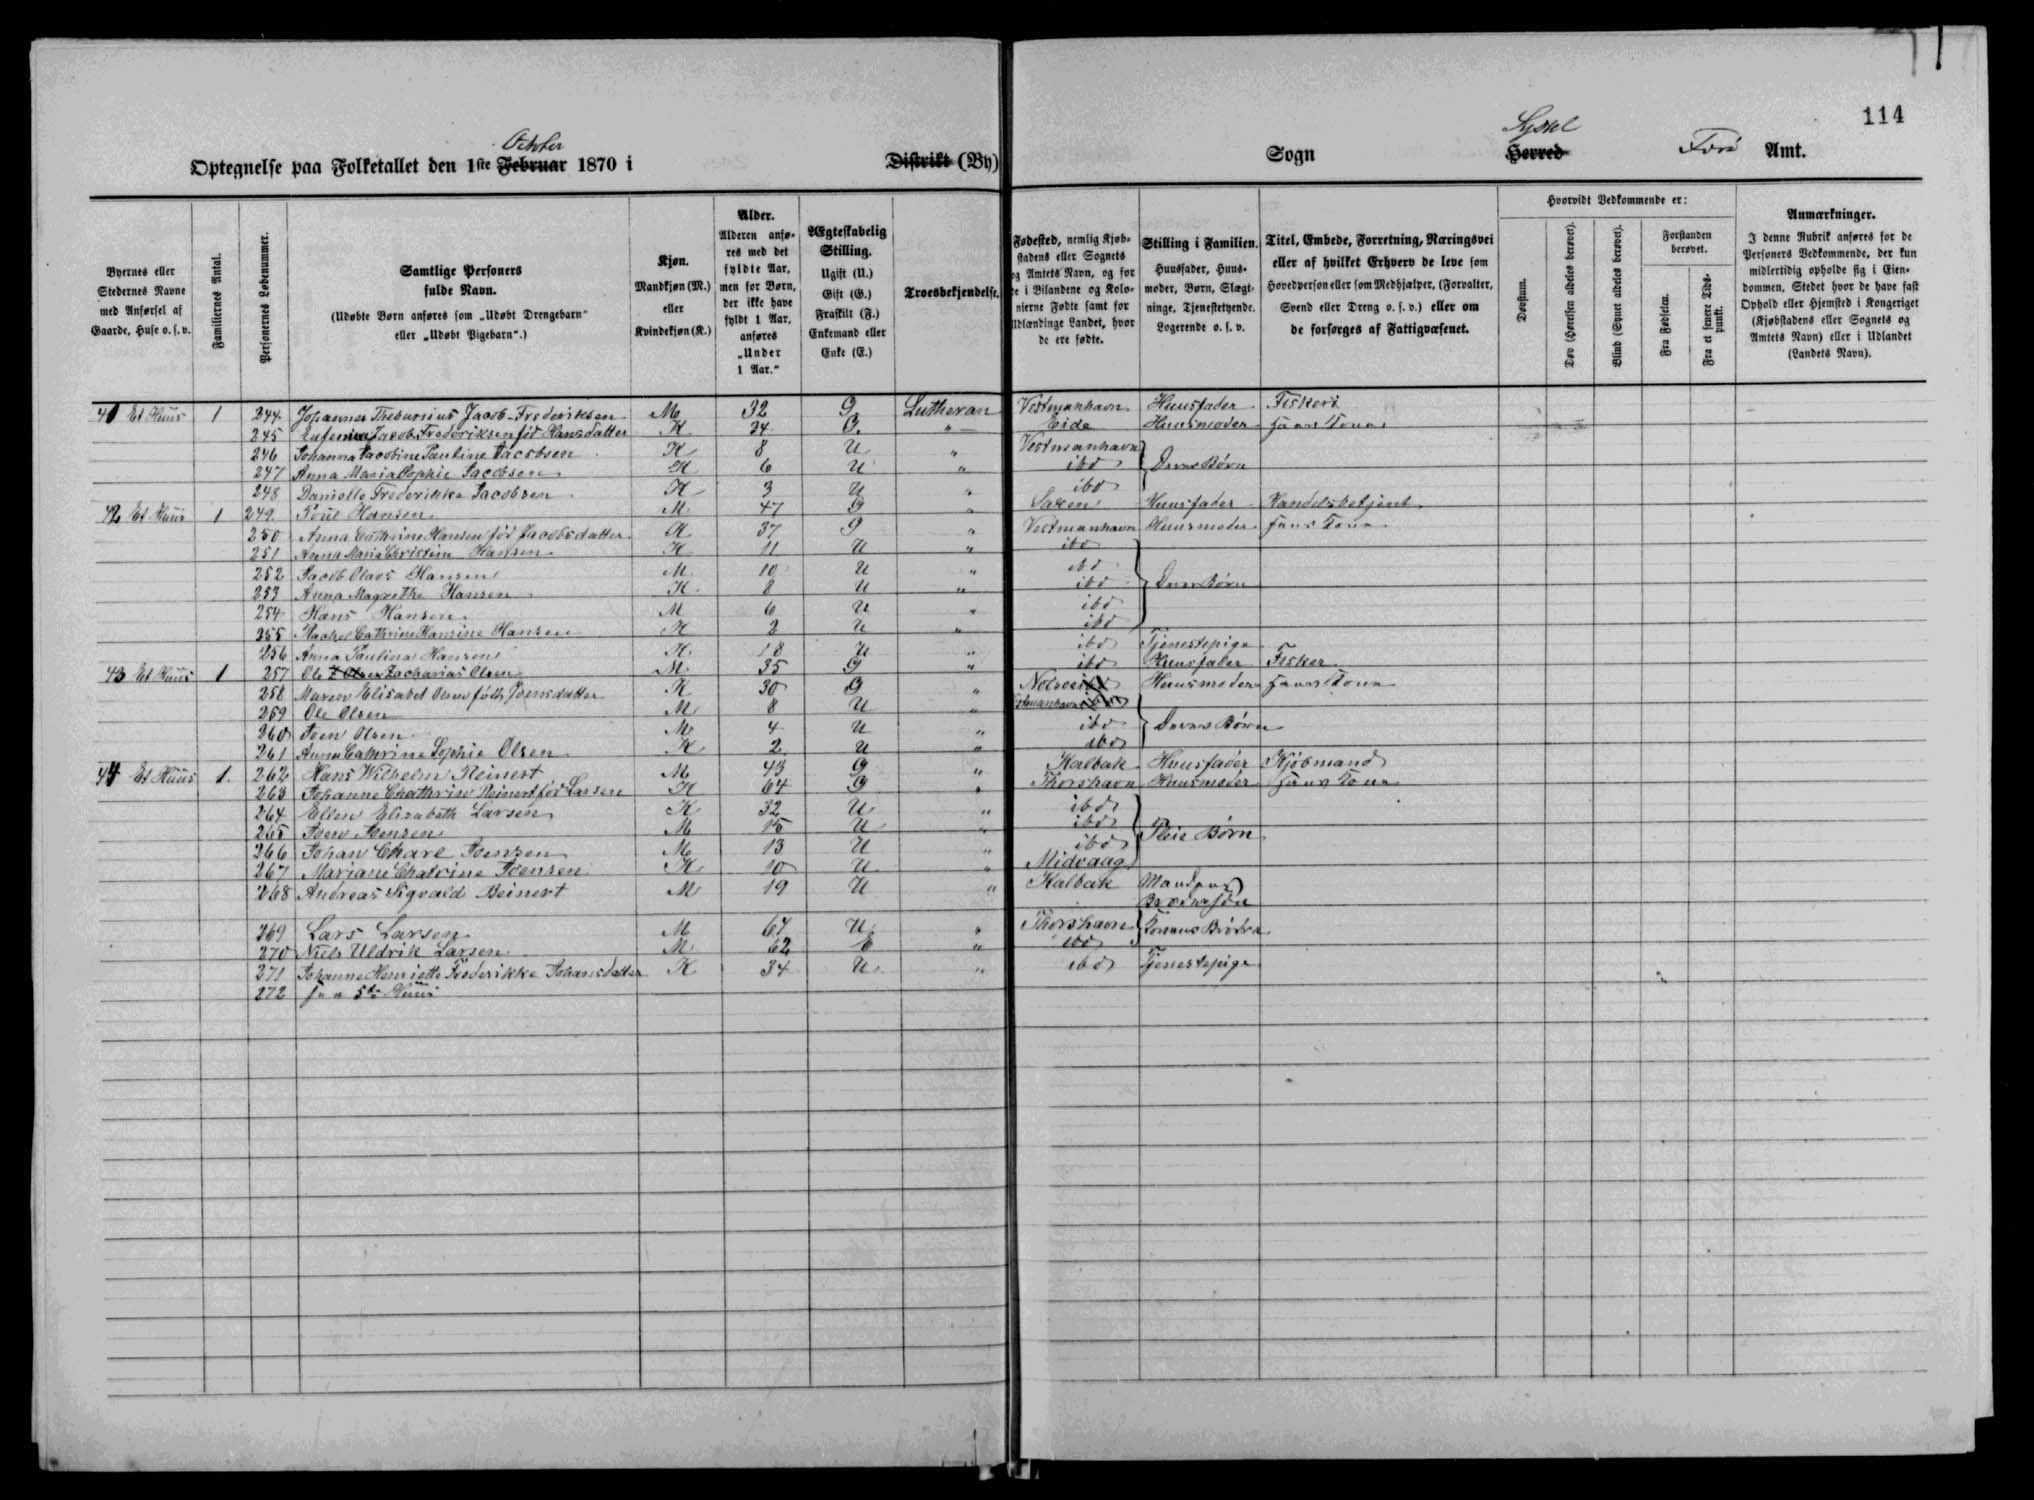 114
October
Optegnelse paa Folketallet den 1ste Februar 1870 i Distrikt (By)
Syssel
Sogn Herred Amt.
Byernes eller Stedernes Navne med Anførsel af Gaarde, Huse o. s. v.
Familiernes Antal.
Personernes Løbenummer.
Samtlige Personers fulde Navn.
(Udøbte Børn anføres som „Udøbt Drengebarn“ eller „Udøbt Pigebarn“.)
Kjøn.
Mandkjøn (M.) eller Kvindekjøn (K.)
Alder.
Alderen anføres med det fyldte Aar, men for Børn, der ikke have fyldt 1 Aar, anføres „Under 1 Aar.“
Ægteskabelig Stilling.
Ugift (U.) Gift (G.) Fraskilt (F.) Enkemand eller Enke (E.)
Troesbekjendelse.
Fødested, nemlig Kjøbstadens eller Sognets og Amtets Navn, og for de i Bilandene og Kolonierne Fødte samt for Udlændinge Landet, hvor de ere fødte.
Stilling i Familien.
Huusfader, Huusmoder, Børn, Slægtninge, Tjenestetyende, Logerende o. s. v.
Titel, Embede, Forretning, Næringsvei eller af hvilket Erhverv de leve som Hovedperson eller som Medhjælper, (Forvalter, Svend eller Dreng o. s. v.) eller om de forsørges af Fattigvæsenet.
Hvorvidt Vedkommende er:
Døvstum.
Døv (Hørelsen aldeles berøvet).
Blind (Synet aldeles berøvet).
Forstanden berøvet.
Fra Fødselen.
Fra et senere Tidspunkt.
Anmærkninger.
I denne Rubrik anføres for de Personers Vedkommende, der kun midlertidig opholde sig i Eiendommen, Stedet hvor de have fast Ophold eller Hjemsted i Kongeriget (Kjøbstadens eller Sognets og Amtets Navn) eller i Udlandet (Landets Navn).
41 Et Huus 1 244 Johannes Jacob Frederiksen M 32 G Lutheran Vestmanhavn Huusfader Fiskeri
245 Jacob Frederiksen fød Hansdatter K 34 G „ Eide Huusmoder hans Kone
246 Johanna Jacobine Pauline Jacobsen K 8 U „ Vestmanhavn
247 Anna Maria Sophie Jacobsen K 6 U „ ibd Deres Børn
248 Danielle Frederikke Jacobsen K 3 U „ ibd
42 Et Huus 1 249 Poul Hansen M 47 G „ Saxen Huusfader Handelsbetjent
250 Anna Cathrine Hansen fød Jacobsdatter K 37 G „ Vestmanhavn Huusmoder hans Kone
251 Anna Maria Christine Hansen K 11 U „ ibd
252 Jacob Olavs Hansen M 10 U „ ibd
253 Anna Magrethe Hansen K 8 U „ ibd Deres Børn
254 Hans Hansen M 6 U „ ibd
255 Rachel Cathrine Hansine Hansen K 2 U „ ibd
256 Anna Paulina Hansen K 18 U „ ibd Tjenestepige
43 Et Huus 1 257 Ole Zacharias Olsen M 35 G „ ibd Huusfader Fisker
258 Maren Elisabet Olsen født Joensdatter K 30 G „ Huusmoder hans Kone
259 Ole Olsen M 8 U Vestmanhavn
260 Joen Olsen M 4 U „ ibd Deres Børn
261 Anna Cathrine Sophie Olsen K 2 U „ ibd
44 Et Huus 1 262 Hans Wilhelm Reinert M 43 G „ Kalbak Huusfader Kjöbmand
263 Johanne Chathrine Reinert fød Larsen K 64 G „ Thorshavn Huusmoder hans Kone
264 Ellen Elisabeth Larsen K 32 U „ ibd
265 Joen Joensen M 15 U „ ibd Pleie Børn
266 Johan Chare Joensen M 13 U „ ibd
267 Mariane Chatrine Joensen K 10 U „ Midvaag
268 Andreas Sigvald Beinert M 19 U „ Kalbak Mandens Brodersøn
269 Lars Larsen M 67 U „ Thorshavn Konens Brödre
270 Niels Uldrik Larsen M 62 E „ ibd
271 Johanne Henriette Frederikke Johansdatter K 34 U „ ibd Tjenestepige
272 Huus